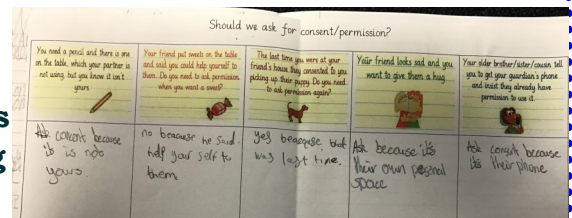 Should we ask for consent/permission?
You need a pencil and there is one
on the table, which your partner is
not using, but you know it isn't
yours
Your friend put sweets on the table
and said you could help yourself to
them. Do you need to ask permission
when you want a sweet?
The last time you were at your
friend's house they consented to you
picking up their puppy. Do you need
to ask permission again?
Your friend looks sad and you
want to give them a hug.
Your older brother/sister/cousin tell
you to get your guardian's phone
and insist they already have
permission to use it.
Ask consent because
it is not
yours.
no because he said.
help your self to
them
yes because that
was last time.
Ask because it's
their own personal
space
Ask consent because
it's their phone
s
g